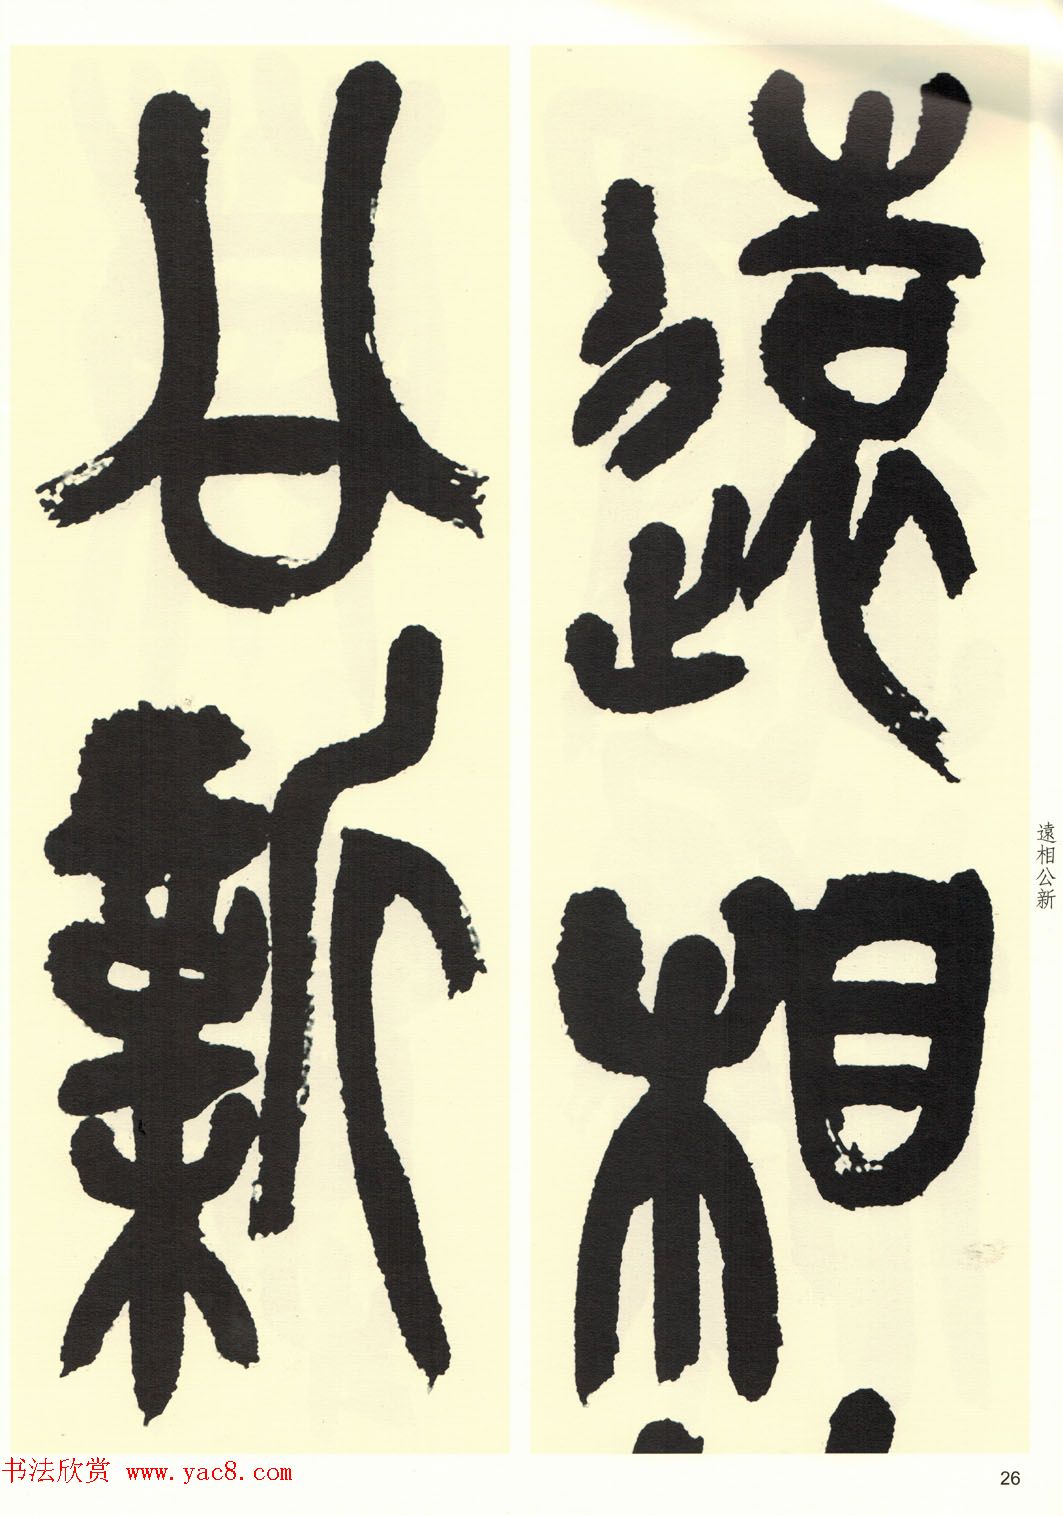 遠相
公新
遠相公新
书法欣赏 www.yac8.com
26